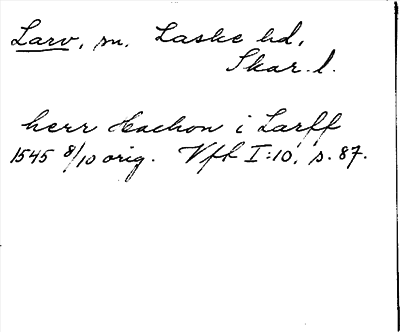 Larv, sn. Laske hd,
Skar. l.
herr Haehon i Larff
1545 8/10 orig. Vfh I:10, s. 87.